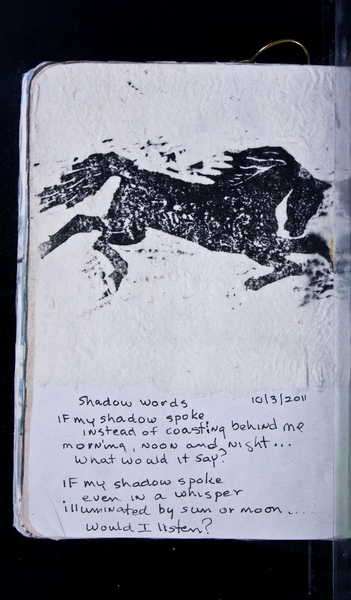 Shadow words 10/3/2011
IF my shadow spoke
instead of coasting behind me
morning, noon and night...
What would it say?
IF my shadow spoke
even in a whisper
illuminated by sun or moon....
Would I listen?